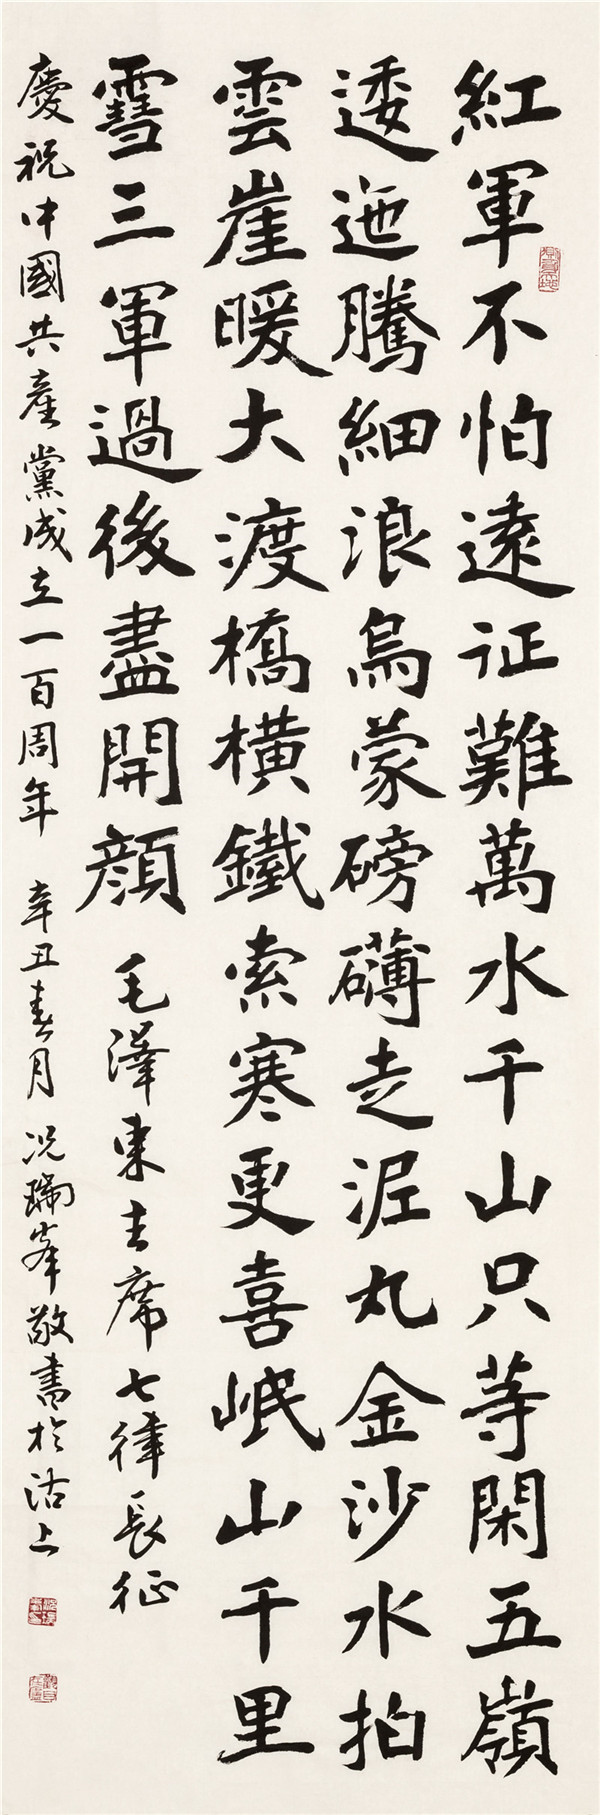 紅軍不怕遠征難萬水千山只等閑五嶺
逶迤騰細浪烏蒙磅礴走泥丸金沙水拍
雲崖暖大渡橋橫鐵索寒更喜岷山千里
雪三軍過後盡開顏
毛澤東主席七律長征
慶祝中國共產黨成立一百周年 辛丑春月 況瑞峯敬書於沽上